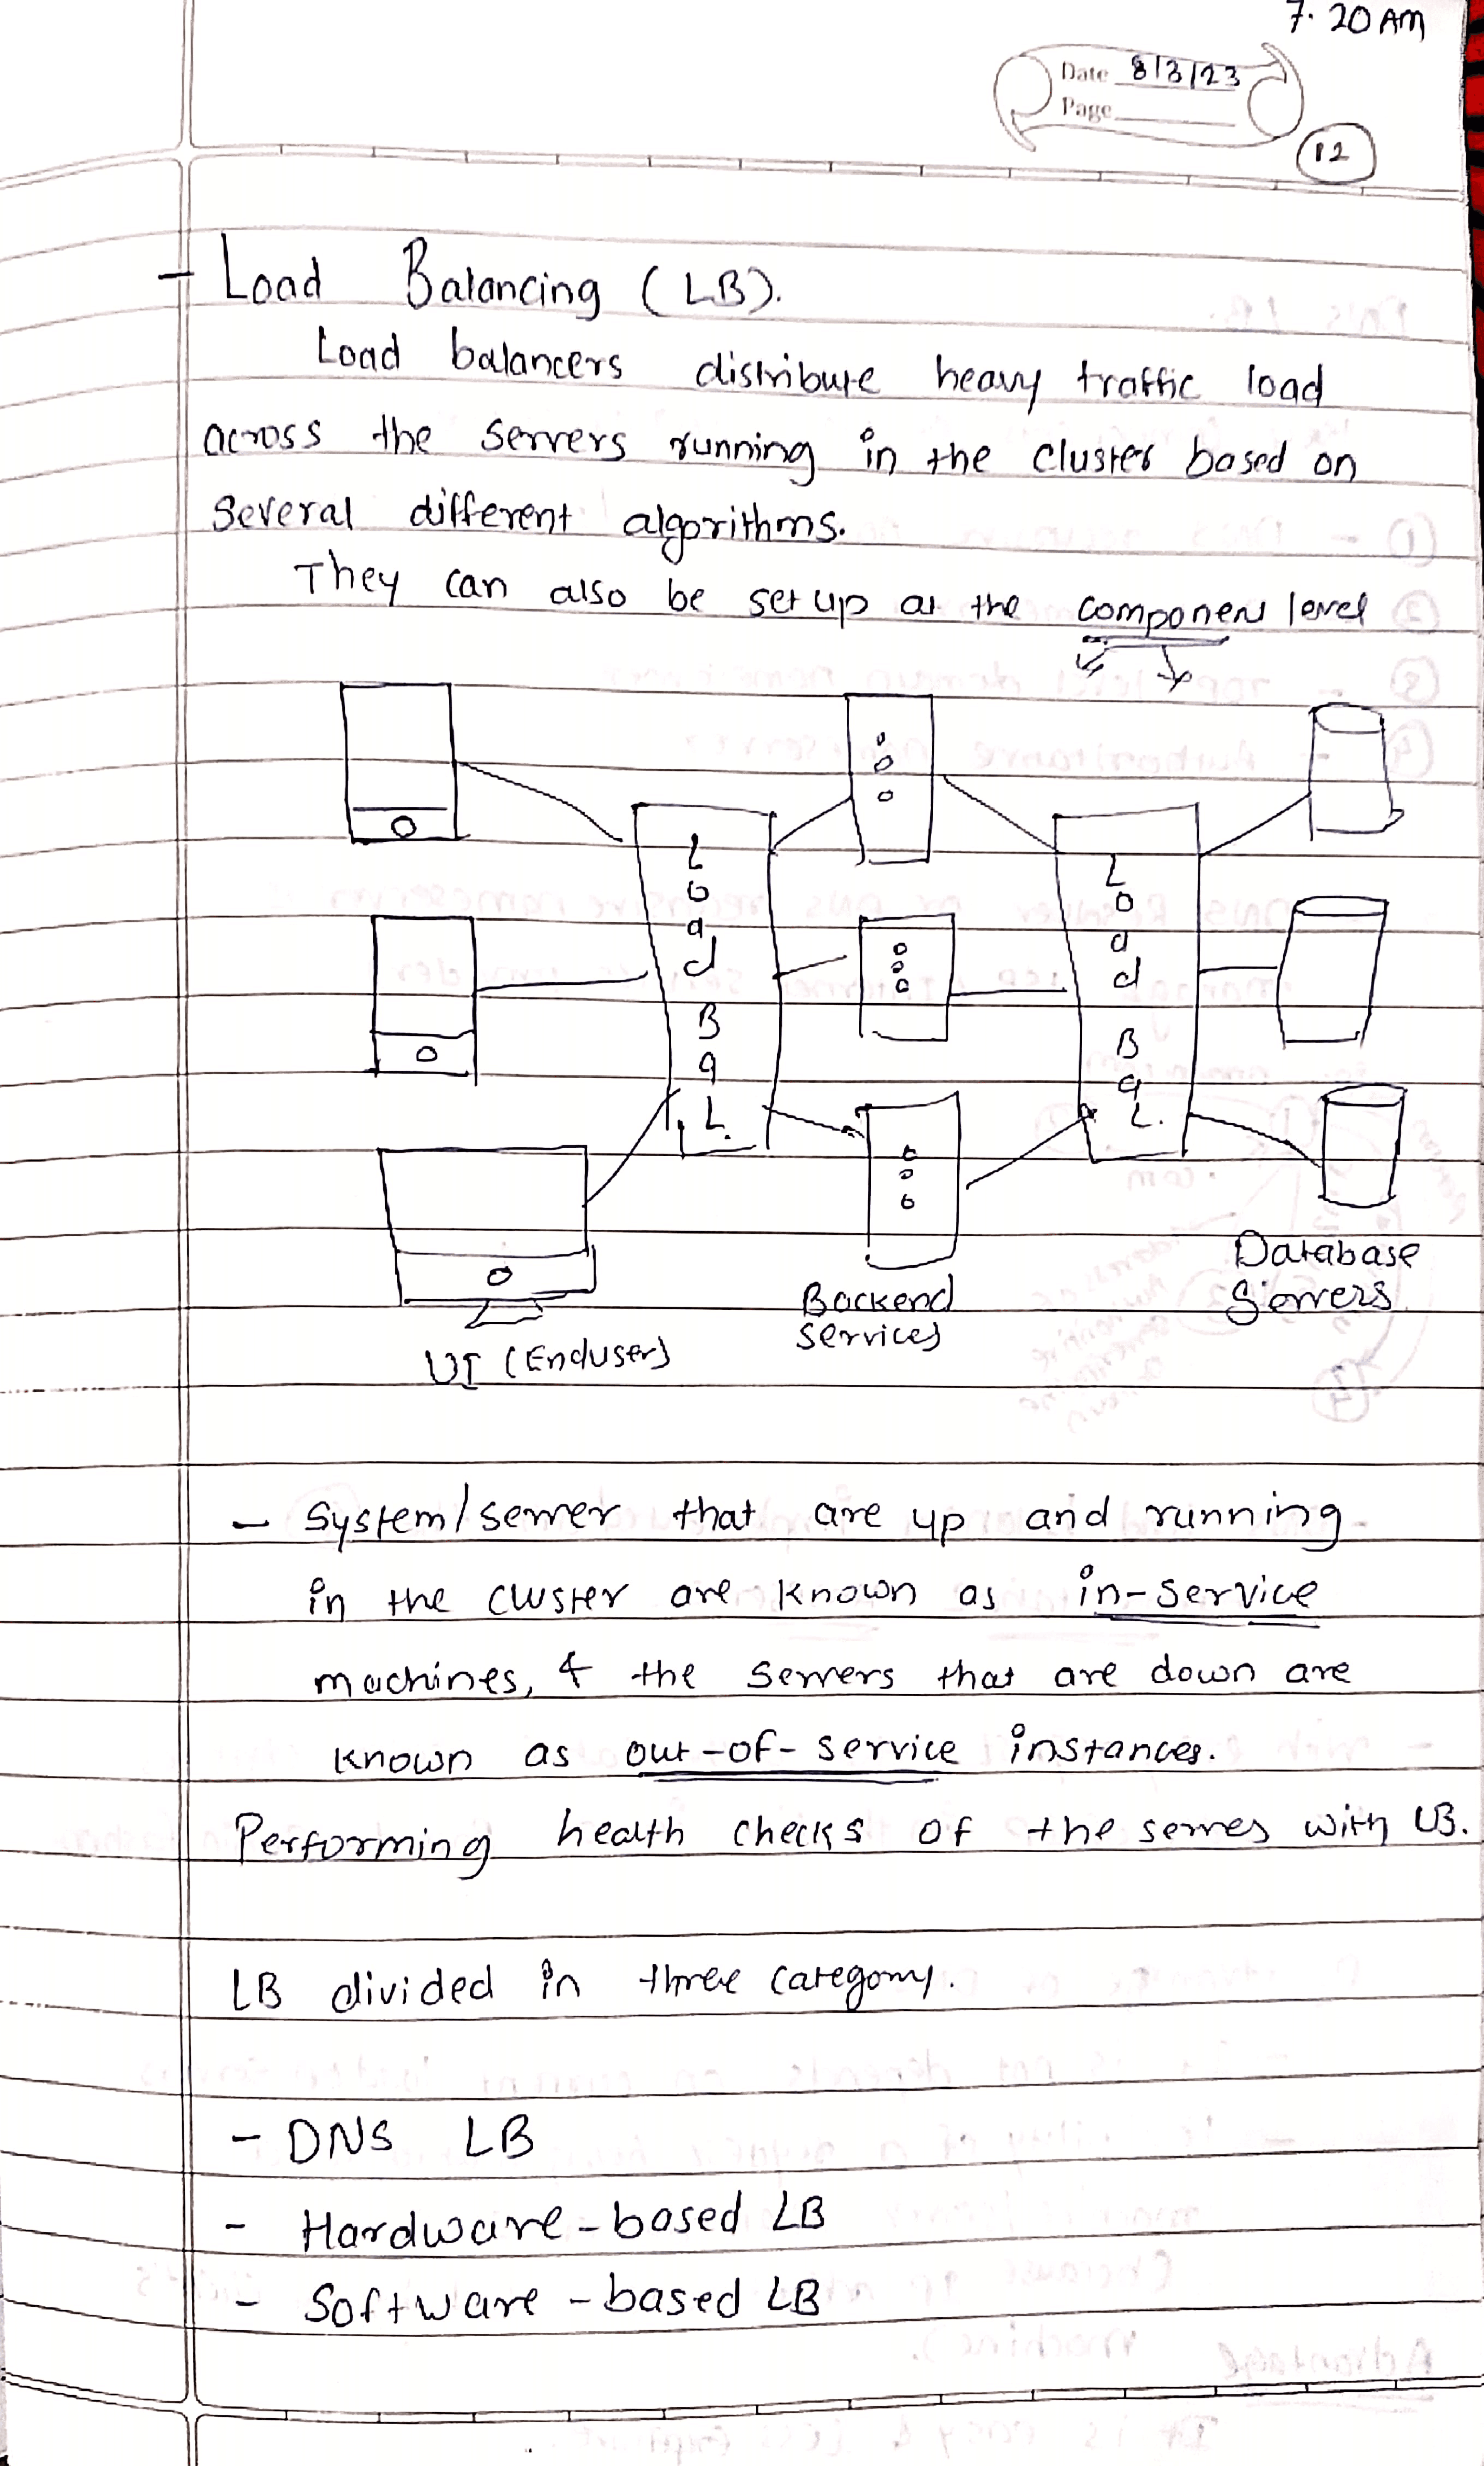 7.20 AM
Date 8/3/23
Page
12
- Load Balancing (LB).
Load balancers distribute heavy traffic load
across the servers running in the cluster based on
several different algorithms.
They can also be set up at the component level
Load Bal.
Load Bal.
Database
Servers
Backend
Services
UI (Enduser)
- System/server that are up and running
in the cluster are known as in-service
machines, & the servers that are down are
known as out-of-service instances.
Performing health checks of the serves with LB.
LB divided in three category.
- DNS LB
- Hardware-based LB
- Software-based LB